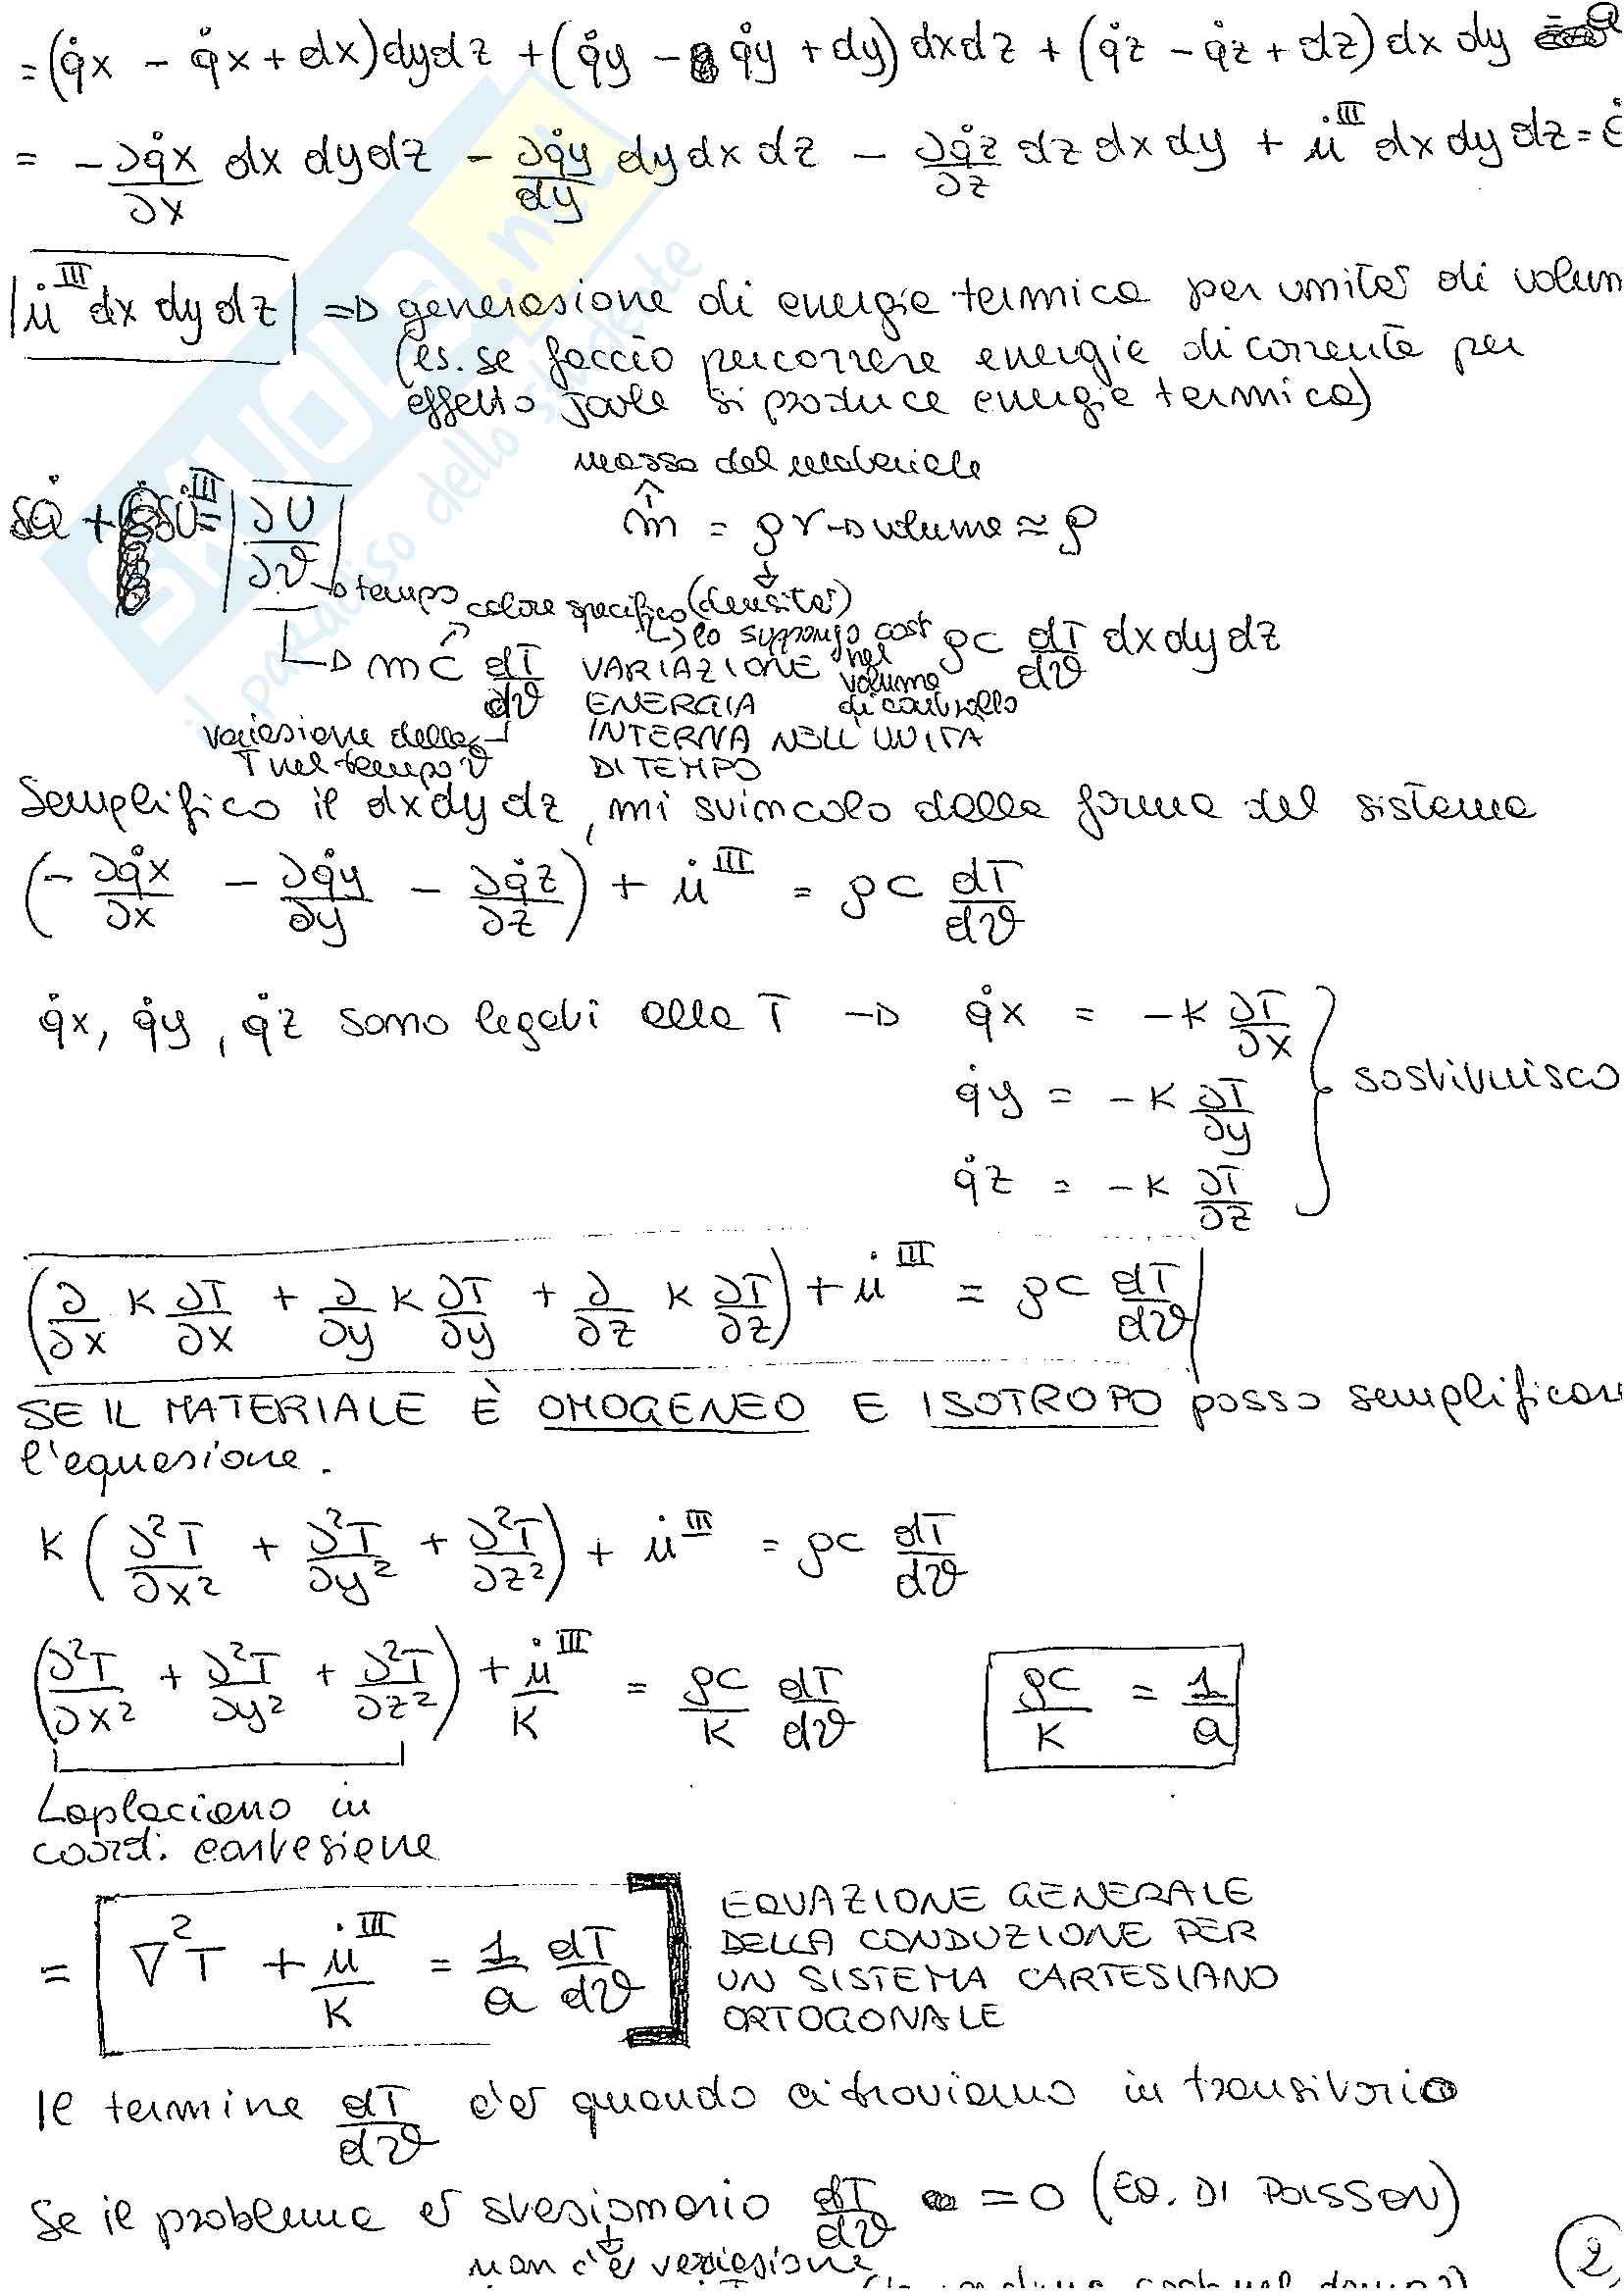 = (q̇x - q̇x + dx) dy dz + (q̇y - q̇y + dy) dx dz + (q̇z - q̇z + dz) dx dy
= - ∂q̇x/∂x dx dy dz - ∂q̇y/dy dy dx dz - ∂q̇z/∂z dz dx dy + u̇ᴵᴵᴵ dx dy dz =
|u̇ᴵᴵᴵ dx dy dz| => generazione di energia termica per unità di volum
(es. se faccio percorrere energia di corrente per
effetto Joule si produce energia termica)
massa del materiale
δQ̇ + δU̇ᴵᴵᴵ = |∂U/∂ϑ| m = ρV → volume ≈ ρ
→ tempo calore specifico (densità)
↳ lo suppongo cost nel volume di controllo
→ mc dT/dϑ VARIAZIONE ENERGIA INTERNA NELL'UNITA DI TEMPO ρc dT/dϑ dx dy dz
variazione della T nel tempo ϑ
Semplifico il dx dy dz, mi svincolo dalla forma del sistema
(- ∂q̇x/∂x - ∂q̇y/∂y - ∂q̇z/∂z) + u̇ᴵᴵᴵ = ρc dT/dϑ
q̇x, q̇y, q̇z sono legati alla T → q̇x = -K ∂T/∂x
q̇y = -K ∂T/∂y } sostituisco
q̇z = -K ∂T/∂z
(∂/∂x K ∂T/∂x + ∂/∂y K ∂T/∂y + ∂/∂z K ∂T/∂z) + u̇ᴵᴵᴵ = ρc dT/dϑ
SE IL MATERIALE È OMOGENEO E ISOTROPO posso semplificare
l'equazione.
K (∂²T/∂x² + ∂²T/∂y² + ∂²T/∂z²) + u̇ᴵᴵᴵ = ρc dT/dϑ
(∂²T/∂x² + ∂²T/∂y² + ∂²T/∂z²) + u̇ᴵᴵᴵ/K = ρc/K dT/dϑ ρc/K = 1/a
Laplaciano in
coord. cartesiane
= [∇²T + u̇ᴵᴵᴵ/K = 1/a dT/dϑ]
EQUAZIONE GENERALE
DELLA CONDUZIONE PER
UN SISTEMA CARTESIANO
ORTOGONALE
Il termine dT/dϑ c'è quando ci troviamo in transitorio
Se il problema è stazionario dT/dϑ = 0 (EQ. DI POISSON)
non c'è variazione
2